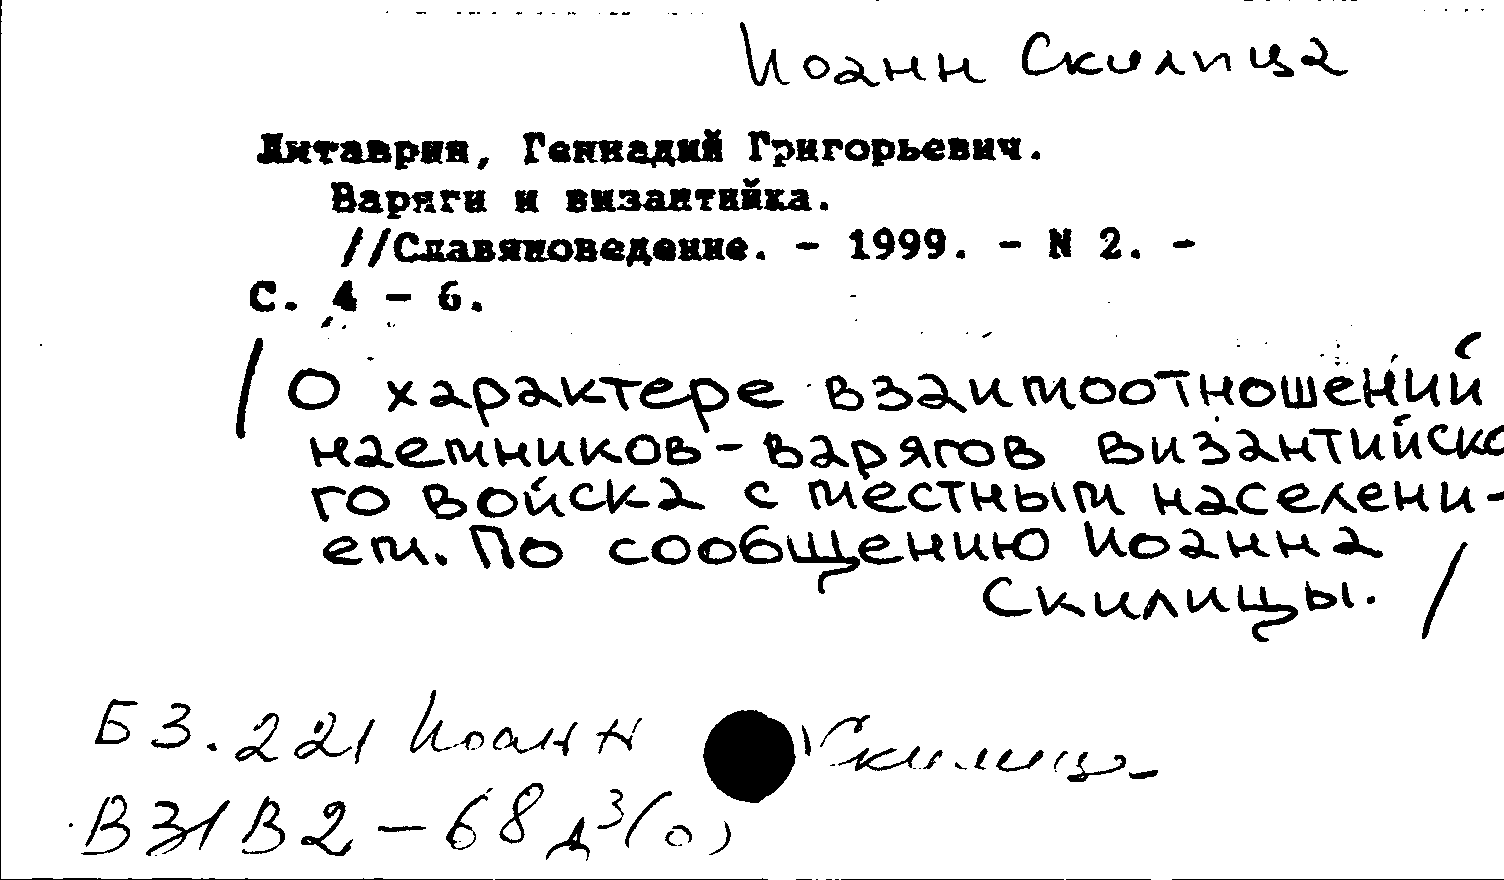 Иоанн Скилица
Литаврин, Геннадий Григорьевич.
Варяги и византийка.
//Славяноведение. - 1999. - N 2. -
С. 4 - 6.
/О характере взаимоотношений
наемников-варягов византийско
го войска с местным населени-
ем. По сообщению Иоанна
Скилицы. /
Б3.221 Иоанн Скилица
В31В2-68д3(0)